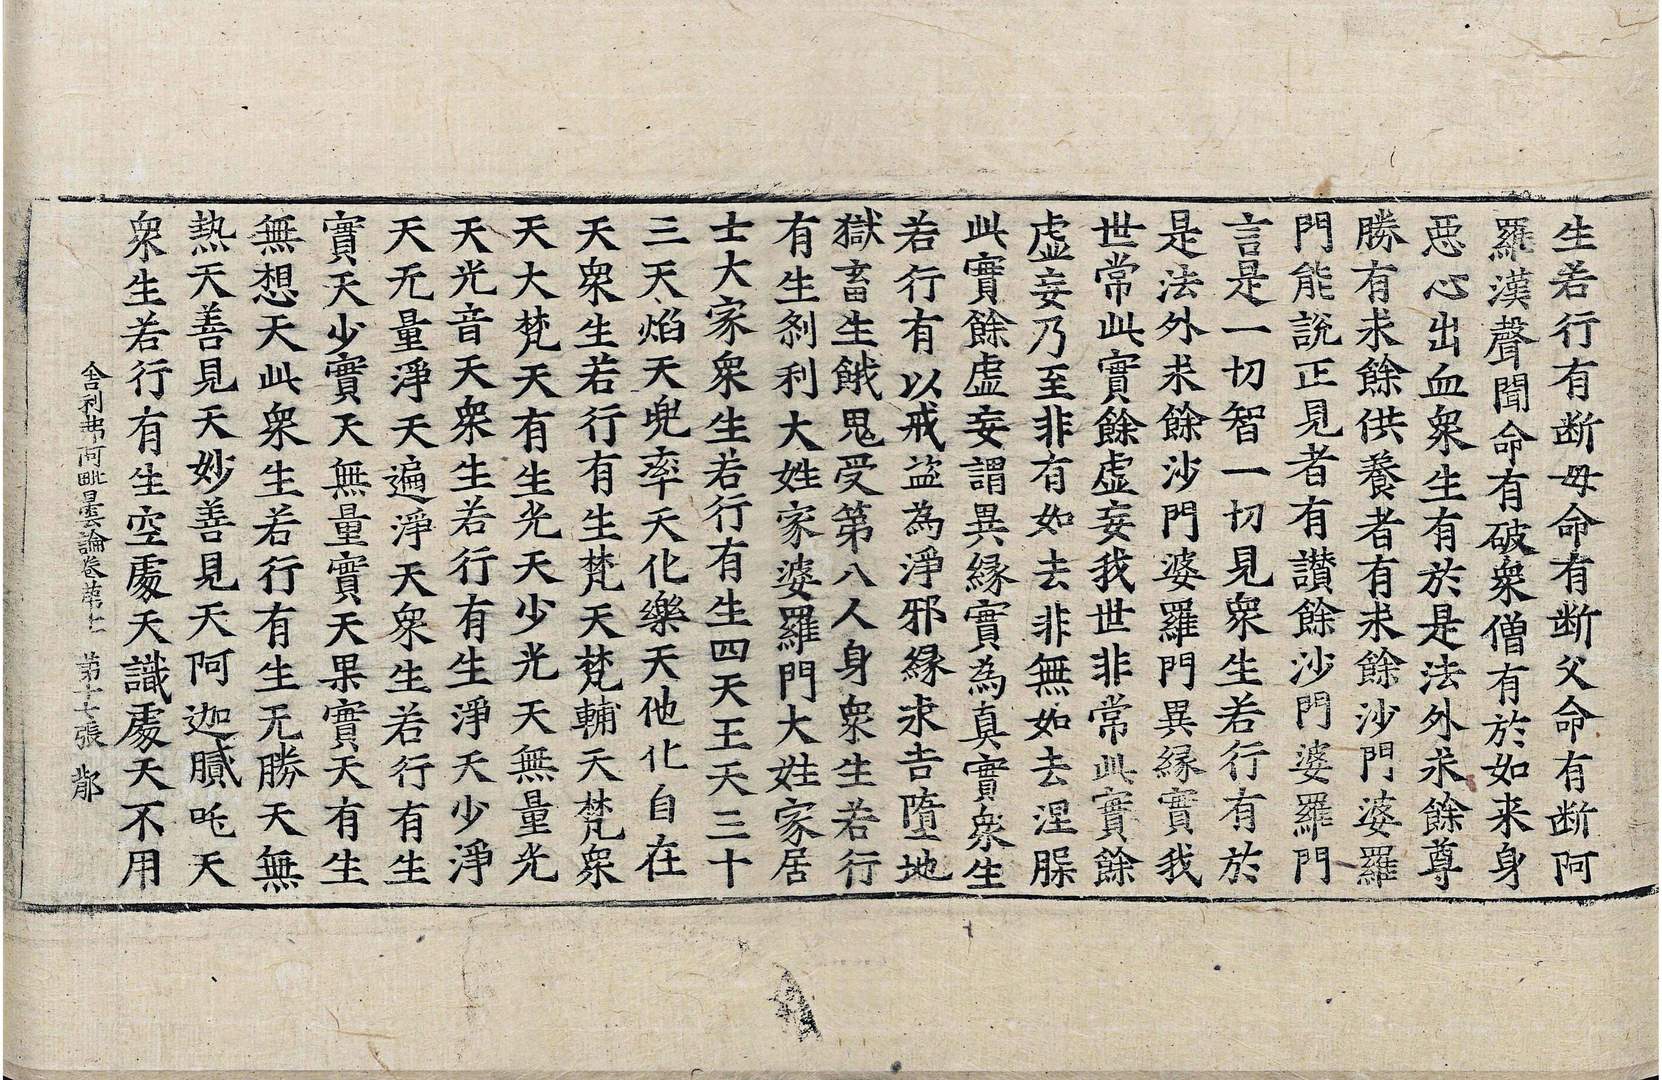 生若行有断母命有断父命有断阿
羅漢聲聞命有破衆僧有於如来身
惡心出血衆生有於是法外求餘尊
勝有求餘供養者有求餘沙門婆羅
門能説正見者有讃餘沙門婆羅門
言是一切智一切見衆生若行有於
是法外求餘沙門婆羅門異縁實我
世常此實餘虚妄我世非常此實餘
虚妄乃至非有如去非無如去涅槃
此實餘虚妄謂異縁實為真實衆生
若行有以戒盗為淨邪縁求吉墮地
獄畜生餓鬼受第八人身衆生若行
有生刹利大姓家婆羅門大姓家居
士大家衆生若行有生四天王天三十
三天焰天兜率天化樂天他化自在
天衆生若行有生梵天梵輔天梵衆
天大梵天有生光天少光天無量光
天光音天衆生若行有生淨天少淨
天无量淨天遍淨天衆生若行有生
實天少實天無量實天果實天有生
無想天此衆生若行有生无勝天無
熱天善見天妙善見天阿迦膩吒天
衆生若行有生空處天識處天不用
舍利弗阿毗曇論卷第七 第十七張